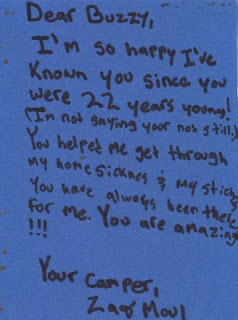 Dear Buzzy,
I'm so happy I've
known you since you
were 22 years young!
(I'm not saying your not still)
You helpet me get through
my home sicknes & my stichs
You have always been there
for me. You are amazing
!!!
Your camper,
Zaqr Moul